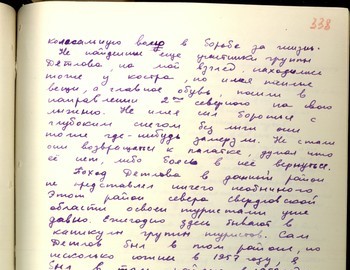 338
колоссальную волю в борьбе за жизнь.
Не найденные еще участники группы
Дятлова, на мой взгляд, находились
тоже у костра, но имея теплые
вещи, а главное обувь, пошли в
направлении 2ого северного на свою
лыжню. Не имея сил бороться с
глубоким снегом без лыж они
тоже где-нибудь замерзли. Не стали
они возвращаться к палатке, думая что
её нет, либо боясь в нее вернуться.
Поход Дятлова в данный район
не представлял ничего необычного.
Этот район севера свердловской
области освоен туристами уже
давно. Ежегодно здесь бывают в
каникулы группы туристов. Сам
Дятлов был в том районе, но
несколько южнее в 1957 году, я
был в том районе в